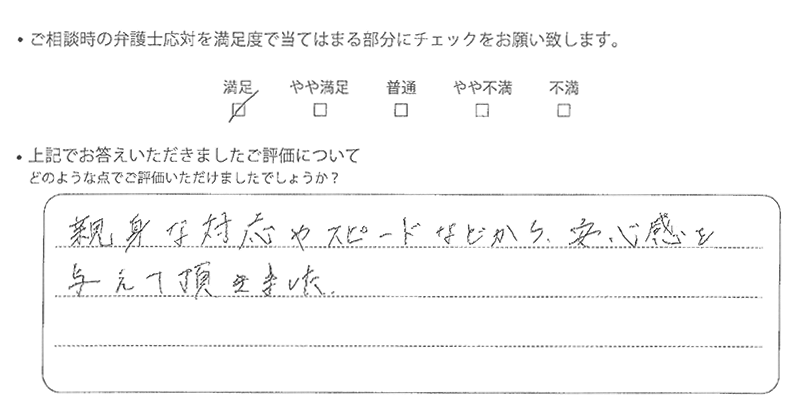 ・ご相談時の弁護士応対を満足度で当てはまる部分にチェックをお願い致します。
満足 やや満足 普通 やや不満 不満
・上記でお答えいただきましたご評価について
どのような点でご評価いただけましたでしょうか？
親身な対応やスピードなどから、安心感を
与えて頂きました。